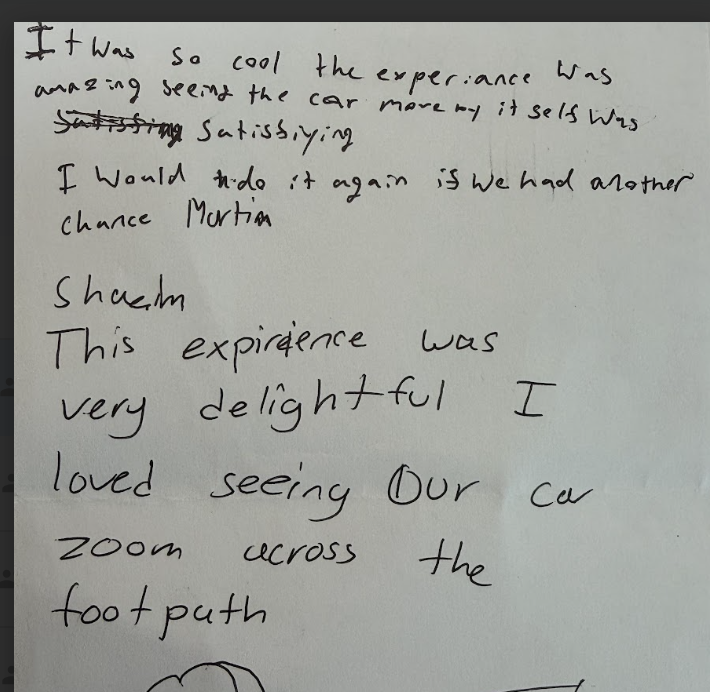 It was so cool the experiance was
amazing seeing the car move by it self was
satissiying
I would do it again if we had another
chance Martin
This expirience was
very delightful I
loved seeing Our car
zoom across the
footpath